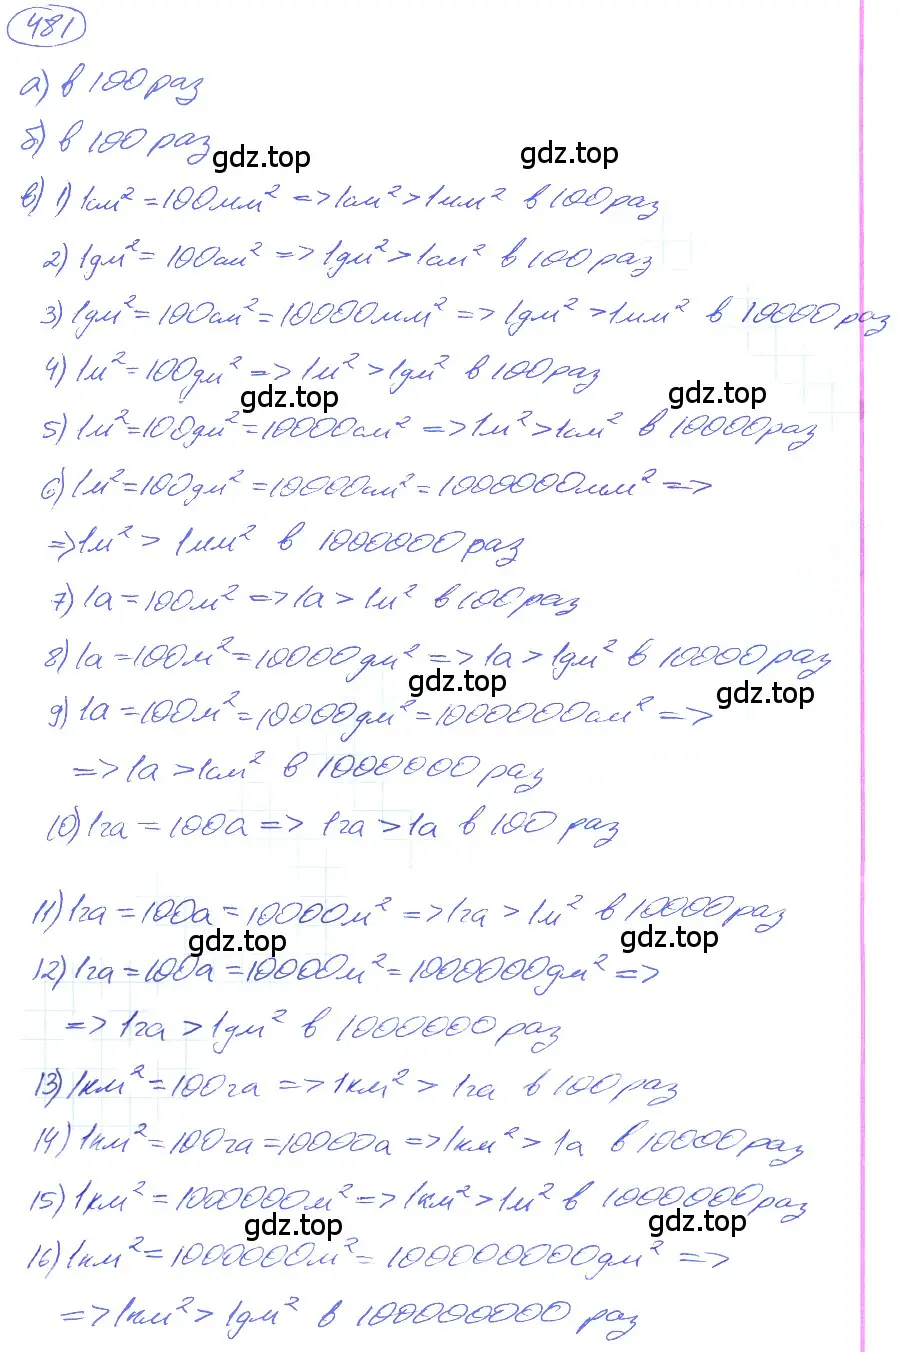 481
а) в 100 раз
б) в 100 раз
gdz.top gdz.top
в) 1) 1см² = 100мм² => 1см² > 1мм² в 100 раз
2) 1дм² = 100см² => 1дм² > 1см² в 100 раз
3) 1дм² = 100см² = 10000мм² => 1дм² > 1мм² в 10000 раз
4) 1м² = 100дм² => 1м² > 1дм² в 100 раз
gdz.top gdz.top
5) 1м² = 100дм² = 10000см² => 1м² > 1см² в 10000 раз
6) 1м² = 100дм² = 10000см² = 1000000мм² =>
=> 1м² > 1мм² в 1000000 раз
7) 1а = 100м² => 1а > 1м² в 100 раз
8) 1а = 100м² = 10000дм² => 1а > 1дм² в 10000 раз
gdz.top gdz.top
9) 1а = 100м² = 10000дм² = 1000000см² =>
=> 1а > 1см² в 1000000 раз
10) 1га = 100а => 1га > 1а в 100 раз
11) 1га = 100а = 10000м² => 1га > 1м² в 10000 раз
gdz.top gdz.top
12) 1га = 100а = 10000м² = 1000000дм² =>
=> 1га > 1дм² в 1000000 раз
13) 1км² = 100га => 1км² > 1га в 100 раз
14) 1км² = 100га = 10000а => 1км² > 1а в 10000 раз
15) 1км² = 1000000м² => 1км² > 1м² в 1000000 раз
gdz.top gdz.top
16) 1км² = 1000000м² = 100000000дм² =>
=> 1км² > 1дм² в 100000000 раз